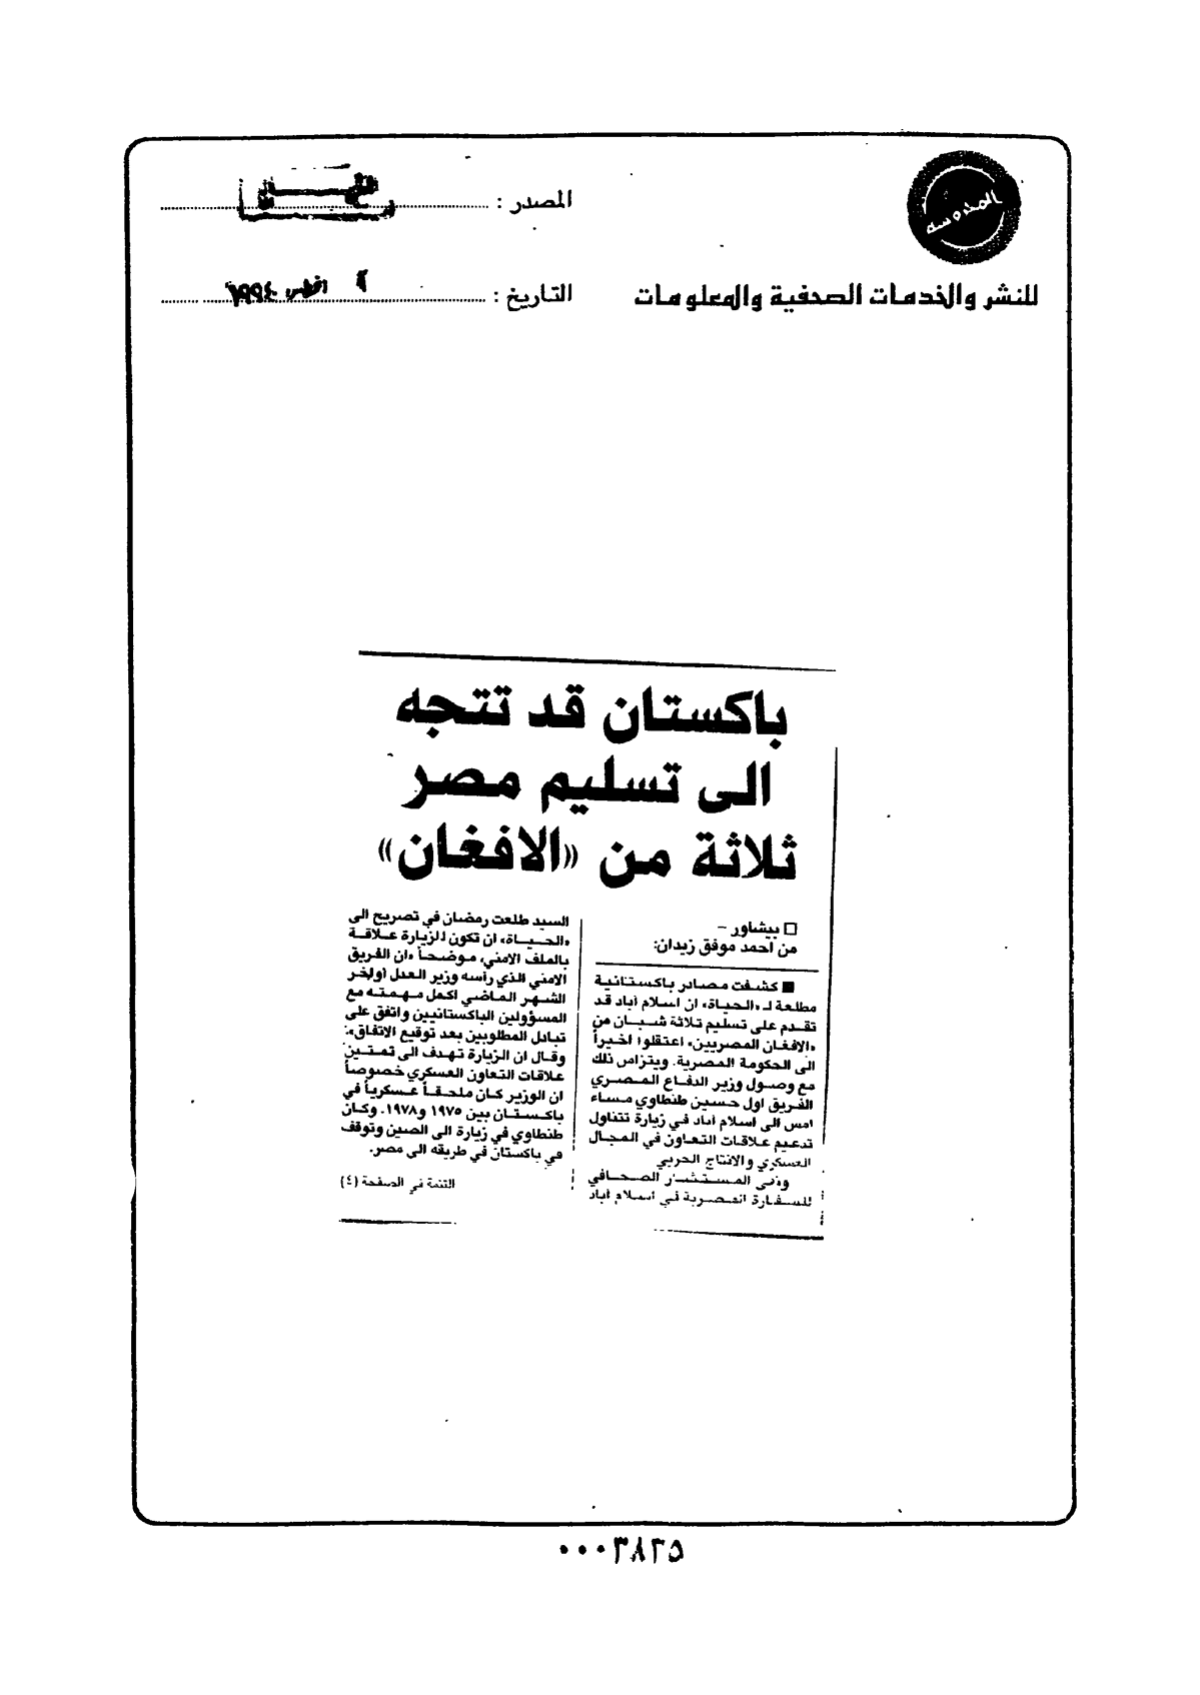 المحروسة
للنشر والخدمات الصحفية والمعلومات
المصدر :
التاريخ : اغطس ١٩٩٤
باكستان قد تتجه
الى تسليم مصر
ثلاثة من «الافغان»
□ بيشاور -
من احمد موفق زيدان:
■ كشفت مصادر باكستانية
مطلعة لـ «الحياة» ان اسلام آباد قد
تقدم على تسليم ثلاثة شبان من
«الافغان المصريين» اعتقلوا اخيراً
الى الحكومة المصرية. ويتزامن ذلك
مع وصول وزير الدفاع المصري
الفريق اول حسين طنطاوي مساء
امس الى اسلام آباد في زيارة تتناول
تدعيم علاقات التعاون في المجال
العسكري والانتاج الحربي
ونفى المستشار الصحافي
للسفارة المصرية في اسلام آباد
السيد طلعت رمضان في تصريح الى
«الحياة» ان تكون للزيارة علاقة
بالملف الامني، موضحاً «ان الفريق
الامني الذي رأسه وزير العدل اواخر
الشهر الماضي اكمل مهمته مع
المسؤولين الباكستانيين واتفق على
تبادل المطلوبين بعد توقيع الاتفاق».
وقال ان الزيارة تهدف الى تمتين
علاقات التعاون العسكري خصوصاً
ان الوزير كان ملحقاً عسكرياً في
باكستان بين ١٩٧٥ و١٩٧٨. وكان
طنطاوي في زيارة الى الصين وتوقف
في باكستان في طريقه الى مصر.
التتمة في الصفحة (٤)
٠٠٠٣٨٢٥